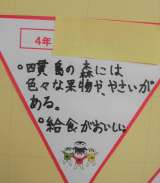 4年
。四貫島の森には
色々な果物や、やさいが
ある。
。給食がおいしい